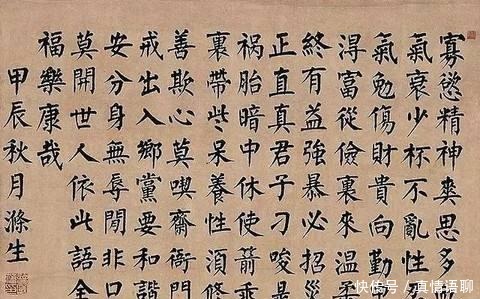 寡慾精神爽思多
氣衰少杯不亂性
氣勉傷財貴向勤
淂富從儉裏來温柔
終有益強暴必招災
正直真君子刁唆是
禍胎暗中休使箭乖
裏帶些呆養性須修
善欺心莫喫齋衙門
戒出入鄉黨要和諧
安分身無辱閒非口
莫開世人依此語全
福樂康哉
甲辰秋月滌生
快传号/真情语聊